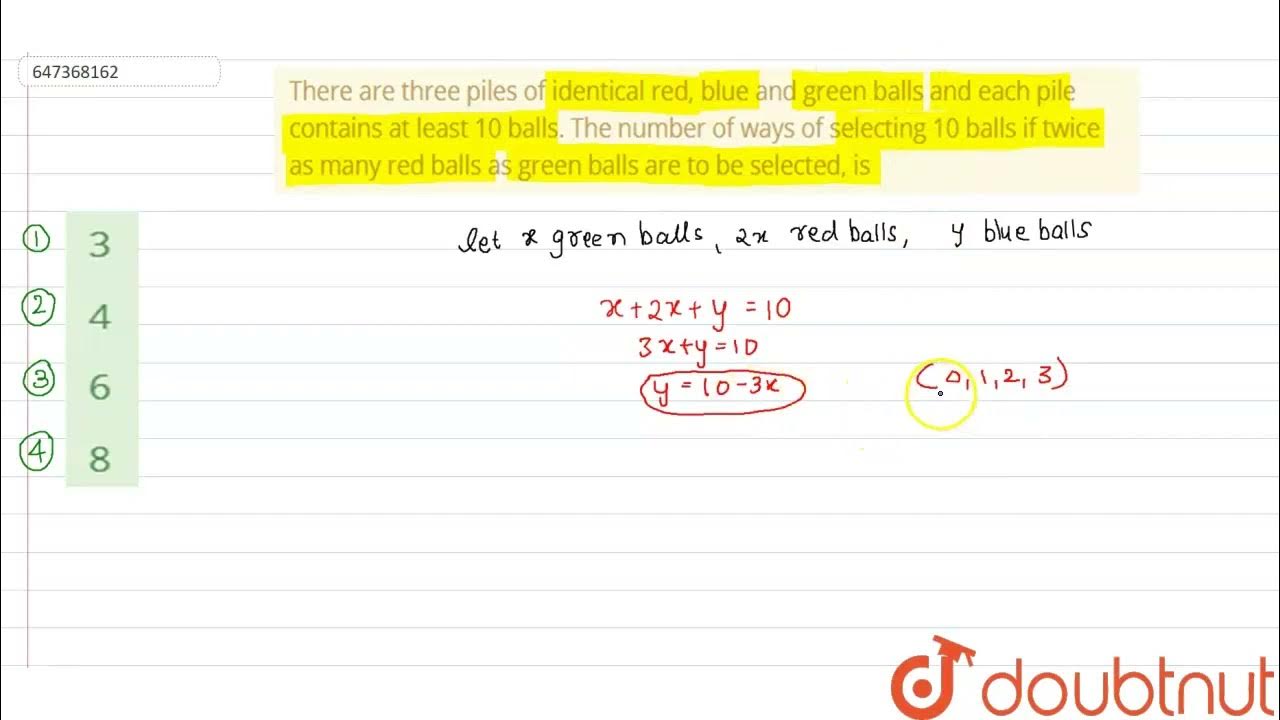 647368162
There are three piles of identical red, blue and green balls and each pile
contains at least 10 balls. The number of ways of selecting 10 balls if twice
as many red balls as green balls are to be selected, is
1 3
let x green balls, 2x red balls, y blue balls
2 4
x+2x+y =10
3x+y=10
3 6
y = 10-3x
(0,1,2,3)
4 8
doubtnut